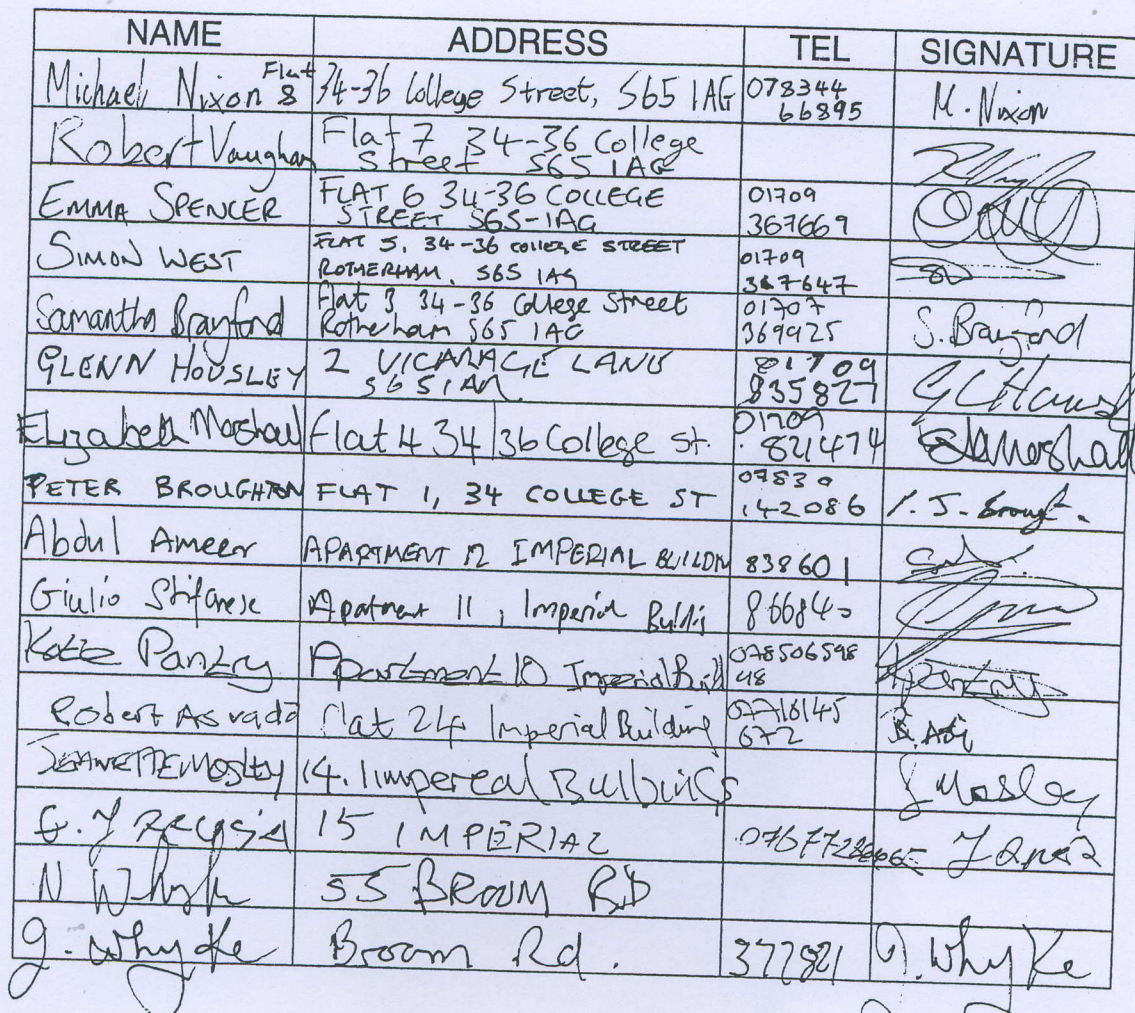 NAME ADDRESS TEL SIGNATURE
Michael Nixon Flat 8 34-36 College Street, S65 1AG 078344 66895 M. Nixon
Robert Vaughan Flat 7 34-36 College
Street S65 1AG
EMMA SPENCER FLAT 6 34-36 COLLEGE 01709
STREET S65-1AG 367669
SIMON WEST FLAT 5, 34-36 COLLEGE STREET 01709
ROTHERHAM. S65 1AG 367647
Samantha Brayford Flat 3 34-36 College Street 01707
Rotherham S65 1AG 369925 S. Brayford
GLENN HOUSLEY 2 VICARAGE LANE 01709
S65 1AA 835827
Elizabeth Marshall Flat 4 34/36 College St. 01709
821474 Marshall
PETER BROUGHTON FLAT 1, 34 COLLEGE ST 07830
142086
Abdul Ameer APARTMENT 12 IMPERIAL BUILDIN 838601
Giulio Apatment 11, Imperial Buildig 866840
Kate Pantry Apartment 10 Imperial Build 078506598
48 Pantry
Robert Asvada Flat 24 Imperial Building 07716145
672
JEANETTE Mosley 14. Iimpereal Bulbuings J Mosley
15 IMPERIAL
N Whyke 55 BROOM RD
J. Whyke Broom Rd. 377821 J. Whyke